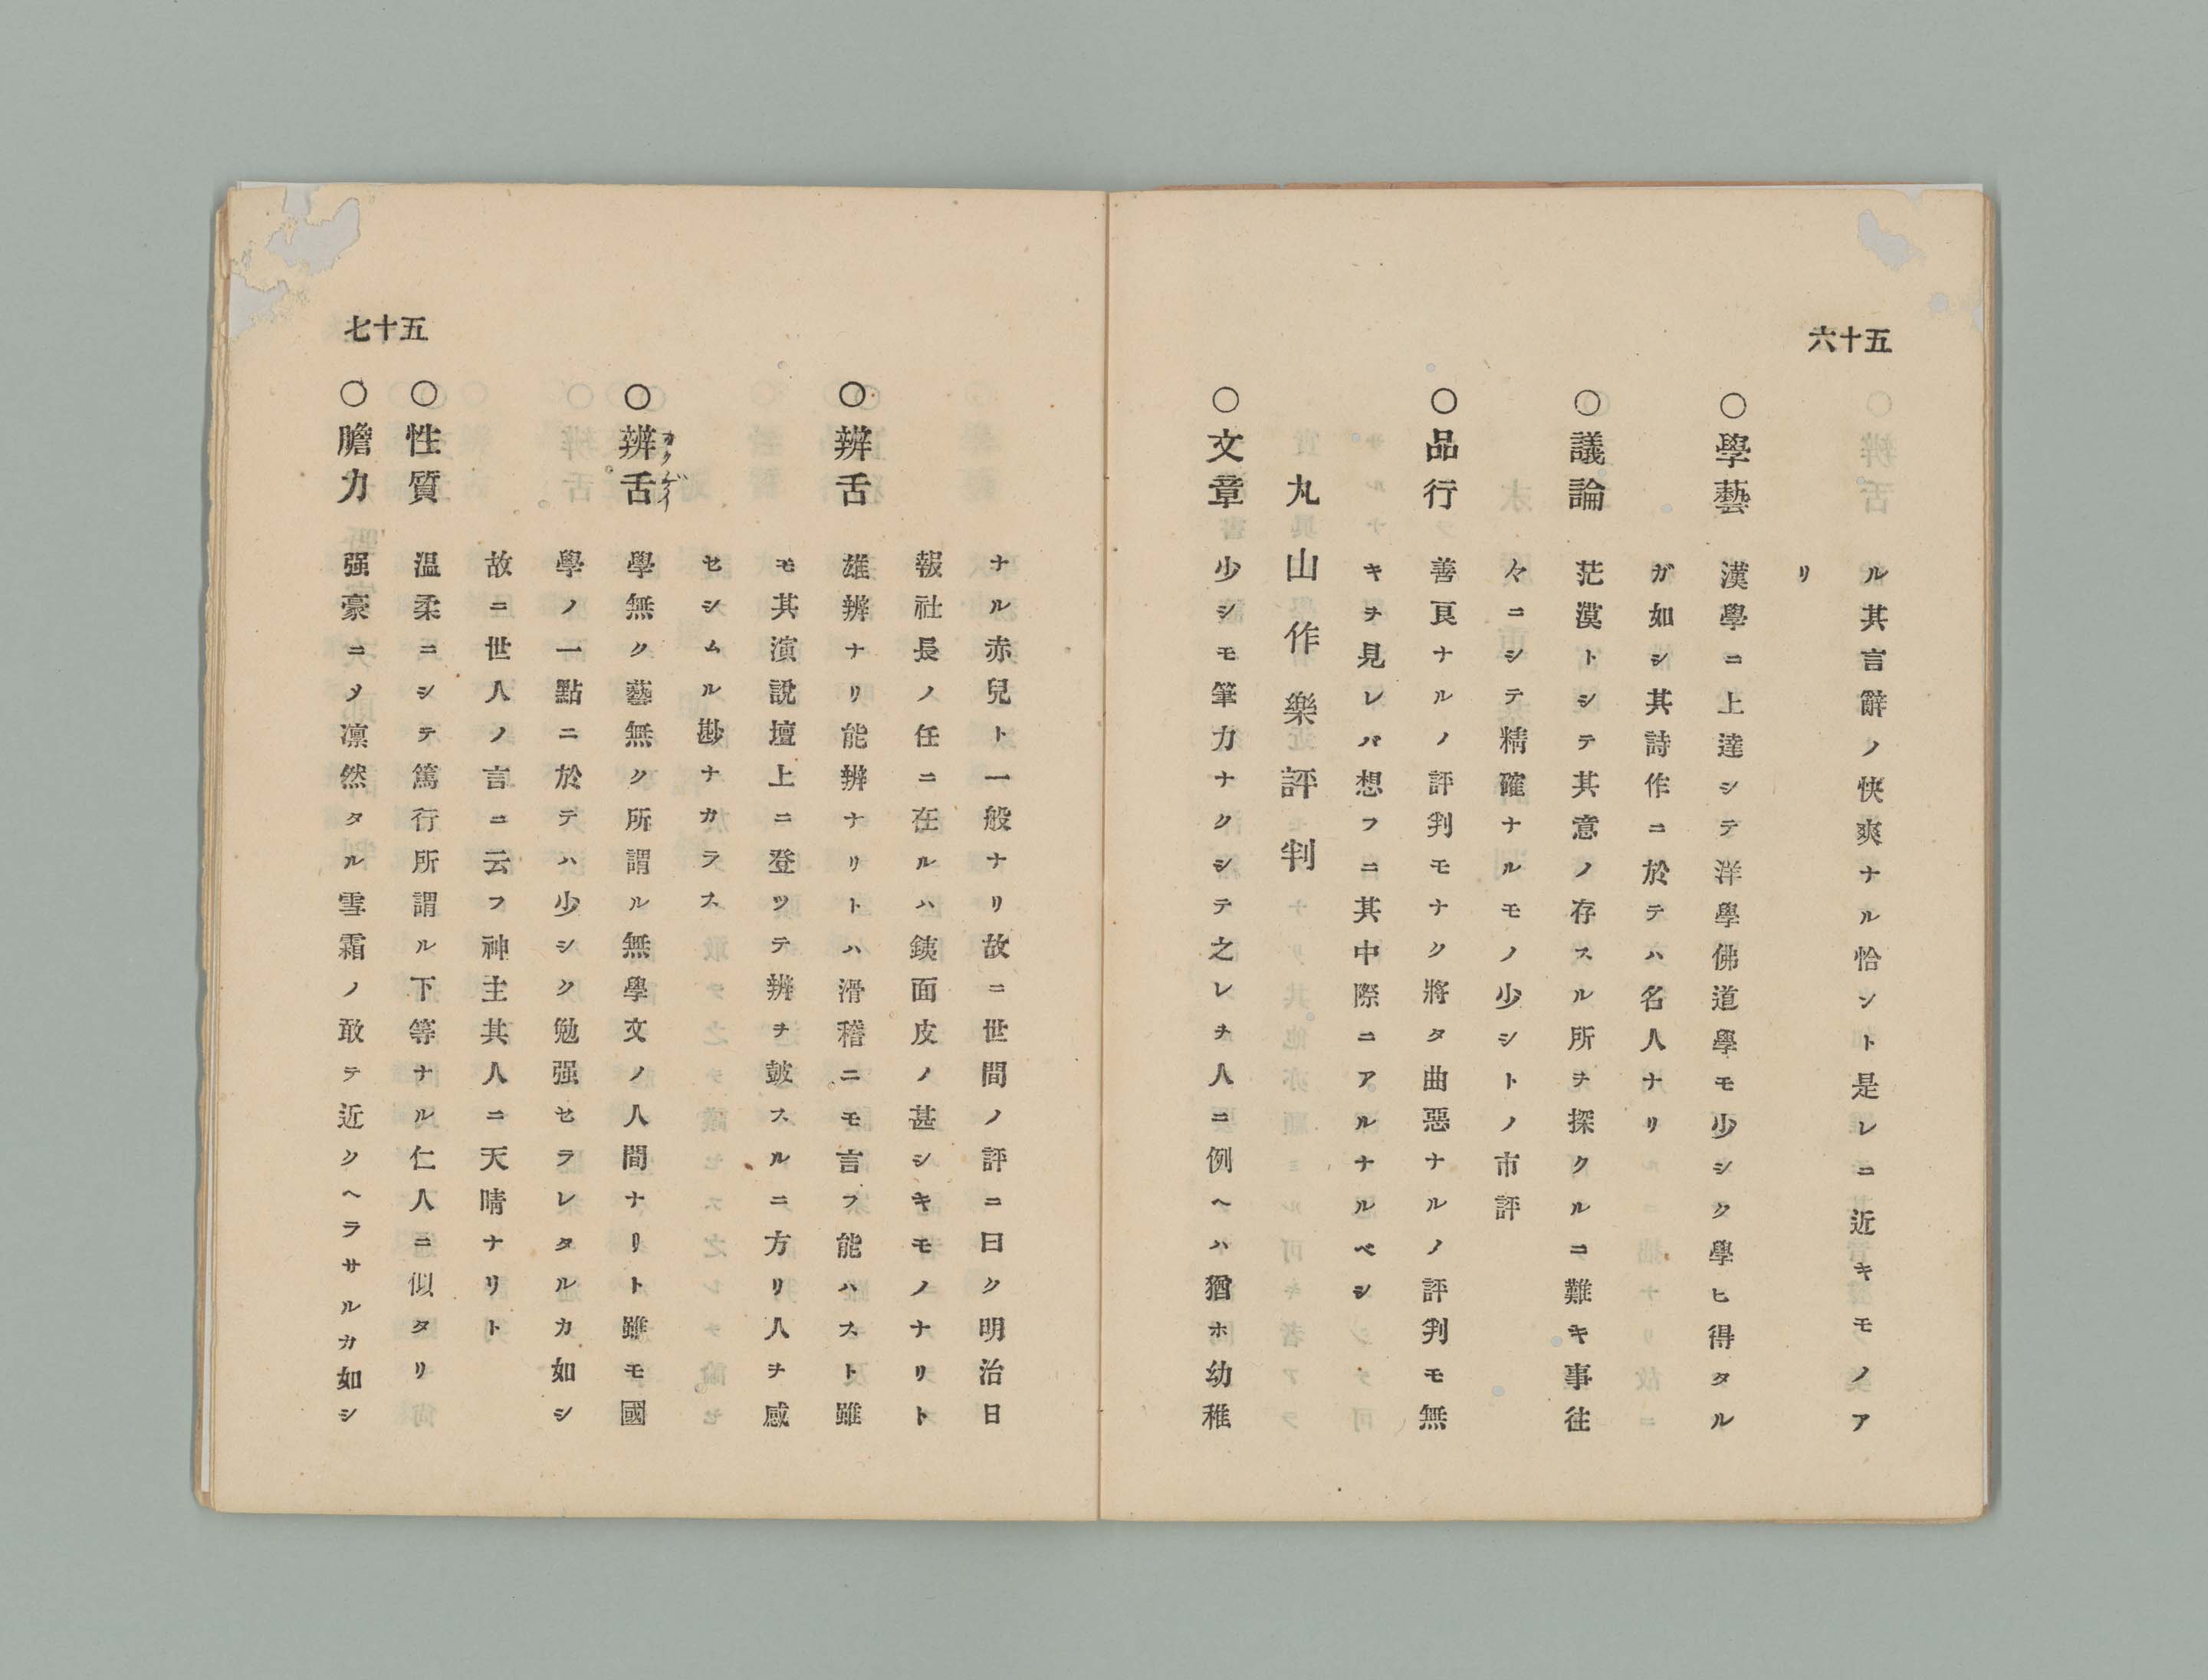 五十六
ル其言辭ノ快爽ナル恰ント是レニ近キモノア
リ
○學藝 漢學ニ上達シテ洋學佛道學モ少シク學ヒ得タル
ガ如シ其詩作ニ於テハ名人ナリ
○議論 茫漠トシテ其意ノ存スル所ヲ探クルニ難キ事往
々ニシテ精確ナルモノ少シトノ市評
○品行 善良ナルノ評判モナク將タ曲惡ナルノ評判モ無
キヲ見レバ想フニ其中際ニアルナルベシ
丸山作樂評判
○文章 少シモ筆力ナクシテ之レヲ人ニ例ヘハ猶ホ幼稚
五十七
ナル赤兒ト一般ナリ故ニ世間ノ評ニ曰ク明治日
報社長ノ任ニ在ルハ銕面皮ノ甚シキモノナリト
○辨舌 雄辨ナリ能辨ナリトハ滑稽ニモ言フ能ハスト雖
モ其演說壇上ニ登ツテ辨ヲ皷スルニ方リ人ヲ感
セシムル尠ナカラス
○辨舌 ガクゲイ 學無ク藝無ク所謂ル無學文ノ人間ナリト雖モ國
學ノ一點ニ於テハ少シク勉强セラレタルカ如シ
故ニ世人ノ言ニ云フ神主其人ニ天晴ナリト
○性質 温柔ニシテ篤行所謂ル下等ナル仁人ニ似タリ
○膽力 强豪ニメ凛然タル雪霜ノ敢テ近クヘラサルカ如シ